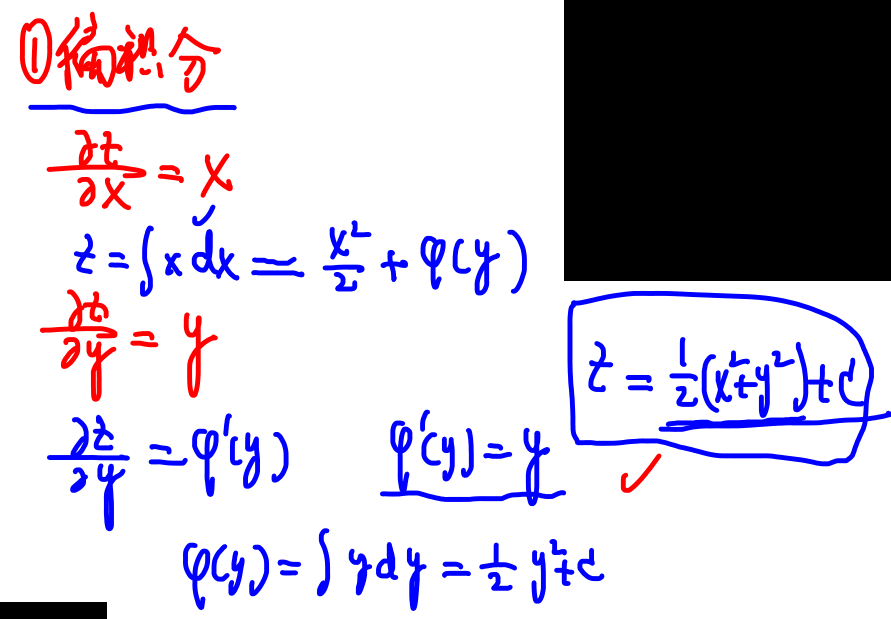 ① 偏积分
∂z/∂x = x
z = ∫ x dx = x²/2 + φ(y)
∂z/∂y = y
∂z/∂y = φ'(y)   φ'(y) = y
φ(y) = ∫ y dy = 1/2 y² + c
z = 1/2 (x² + y²) + c